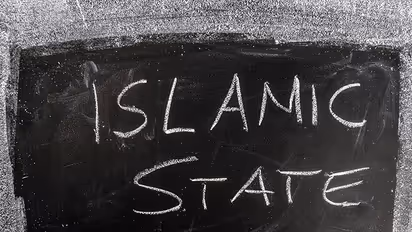 ISLAMIC
STATE